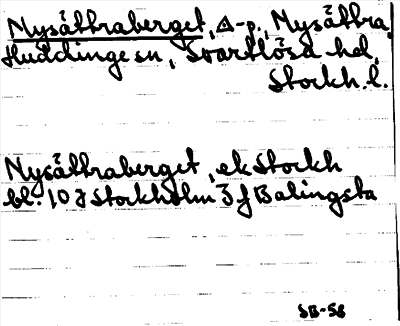 Nysätraberget, Δ-p., Nysätra,
Huddinge sn, Svartlösa hd,
Stockh. l.
Nysätraberget, ek Stockh
bl. 10 I Stockholm I f Balingsta
SB-58